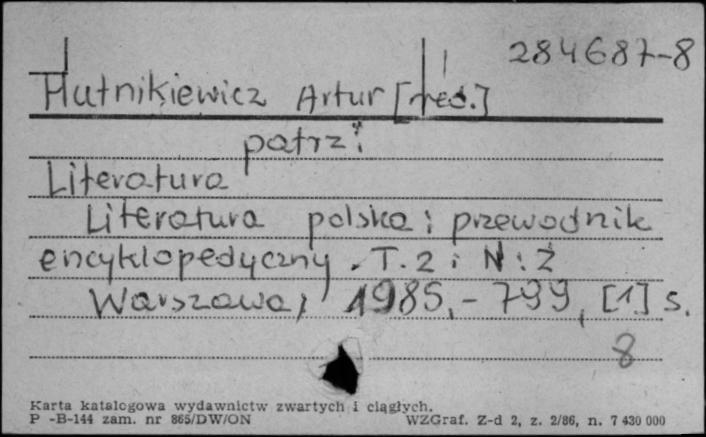 284687-8
Hutnikiewicz Artur [red.]
patrz:
Literatura
Literatura polska: przewodnik
encyklopedyczny. T. 2: N: Ż
Warszawa, 1985,- 799, [1] s.
8
Karta katalogowa wydawnictw zwartych i ciągłych.
P -B-144 zam. nr 865/DW/ON WZGraf. Z-d 2, z. 2/86, n. 7 430 000